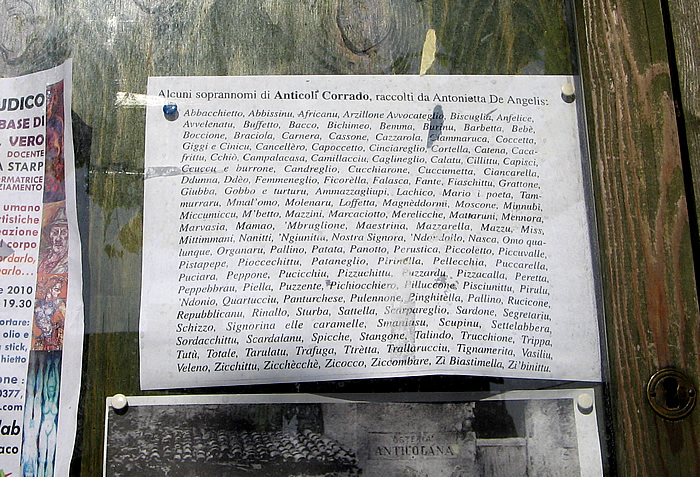 Alcuni soprannomi di Anticoli Corrado, raccolti da Antonietta De Angelis:
Abbacchietto, Abbissinu, Africanu, Arzillone Avvocateglio, Biscuglia, Anfelice,
Avvelenatu, Buffetto, Bacco, Bichimeo, Bemma, Burinu, Barbetta, Bebè,
Boccione, Braciola, Carnera, Cassone, Cazzarola, Ciammaruca, Coccetta,
Giggi e Cinicu, Cancellèro, Capoccetto, Cinciareglio, Cortella, Catena, Caca-
frittu, Cchiò, Campalacasa, Camillacciu, Caglineglio, Calatu, Cillittu, Capisci,
Ceuccu e burrone, Candreglio, Cucchiarone, Cuccumetta, Ciancarella,
Ddunna, Ddèo, Femmeneglio, Ficorèlla, Falasca, Fante, Fiaschittu, Grattone,
Giubba, Gobbo e turturu, Ammazzagliupi, Lachico, Mario i poeta, Tam-
murraru, Mmal'omo, Molenaru, Loffetta, Magnèddormi, Moscone, Minnubi,
Miccumiccu, M'betto, Mazzini, Marcaciotto, Merelicche, Mattaruni, Mennora,
Marvasia, Mamao, 'Mbruglione, Maestrina, Mazzarella, Mazzu, Miss,
Mittimmani, Nanitti, 'Ngiunitiu, Nostra Signora, Nasca, Omo qua-
lunque, Organaru, Pallino, Patata, Panotto, Perustica, Piccoletto, Piccuvalle,
Pistapepe, Pioccechittu, Pataneglio, Pirinella, Pellecchia, Puccarella,
Puciara, Peppone, Pucicchiu, Pizzuchittu, Puzzarda, Pizzacalla, Peretta,
Peppebbrau, Piella, Puzzente, Pichiocchiero, Pilluccone, Pisciunittu, Pirulu,
'Ndonio, Quartucciu, Panturchese, Pulennone, Pinghitella, Pallino, Rucicone,
Repubblicanu, Rinallo, Sturba, Sattella, Scarpareglio, Sardone, Segretariu,
Schizzo, Signorina elle caramelle, Scupinu, Settelabbera,
Sordacchittu, Scardalanu, Spicche, Stangone, Talindo, Trucchione, Trippa,
Tutù, Totale, Tarulatu, Trafuga, Ttrètta, Trallarucciu, Tignamerita, Vasiliu,
Veleno, Zicchittu, Zicchècchè, Zicocco, Ziccombare, Zi Biastimella, Zi'binittu.
UDICO
BASE DI
VERO
DOCENTE
A STARP
ORMATRICE
ZIAMENTO
umano
rtistiche
eazione
l corpo
ordarlo,
arlo...
e 2010
19.30
ortare:
olio e
a stick,
hietto
one :
0377,
.com
lab
aco
OSTERIA
ANTICOLANA